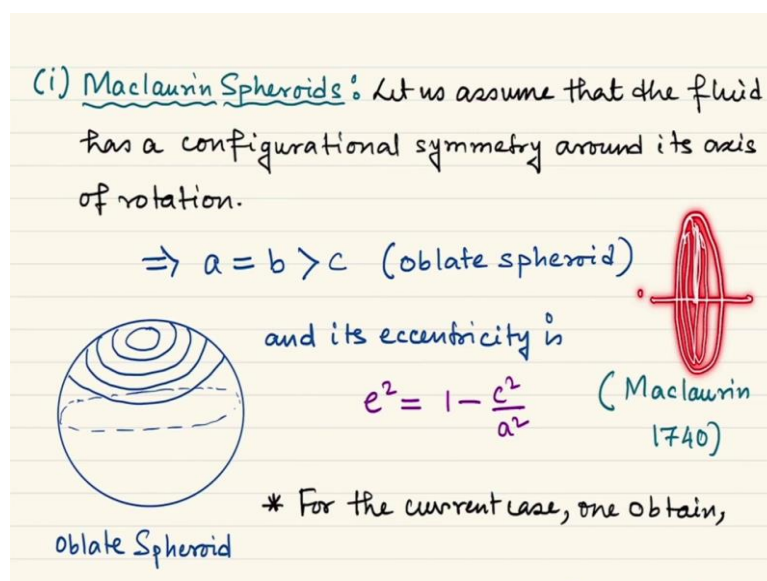 (i) Maclaurin Spheroids: Let us assume that the fluid
has a configurational symmetry around its axis
of rotation.
⇒ a = b > c (oblate spheroid)
and its eccentricity is
e² = 1 - c²/a²
(Maclaurin
1740)
* For the current case, one obtain,
Oblate Spheroid